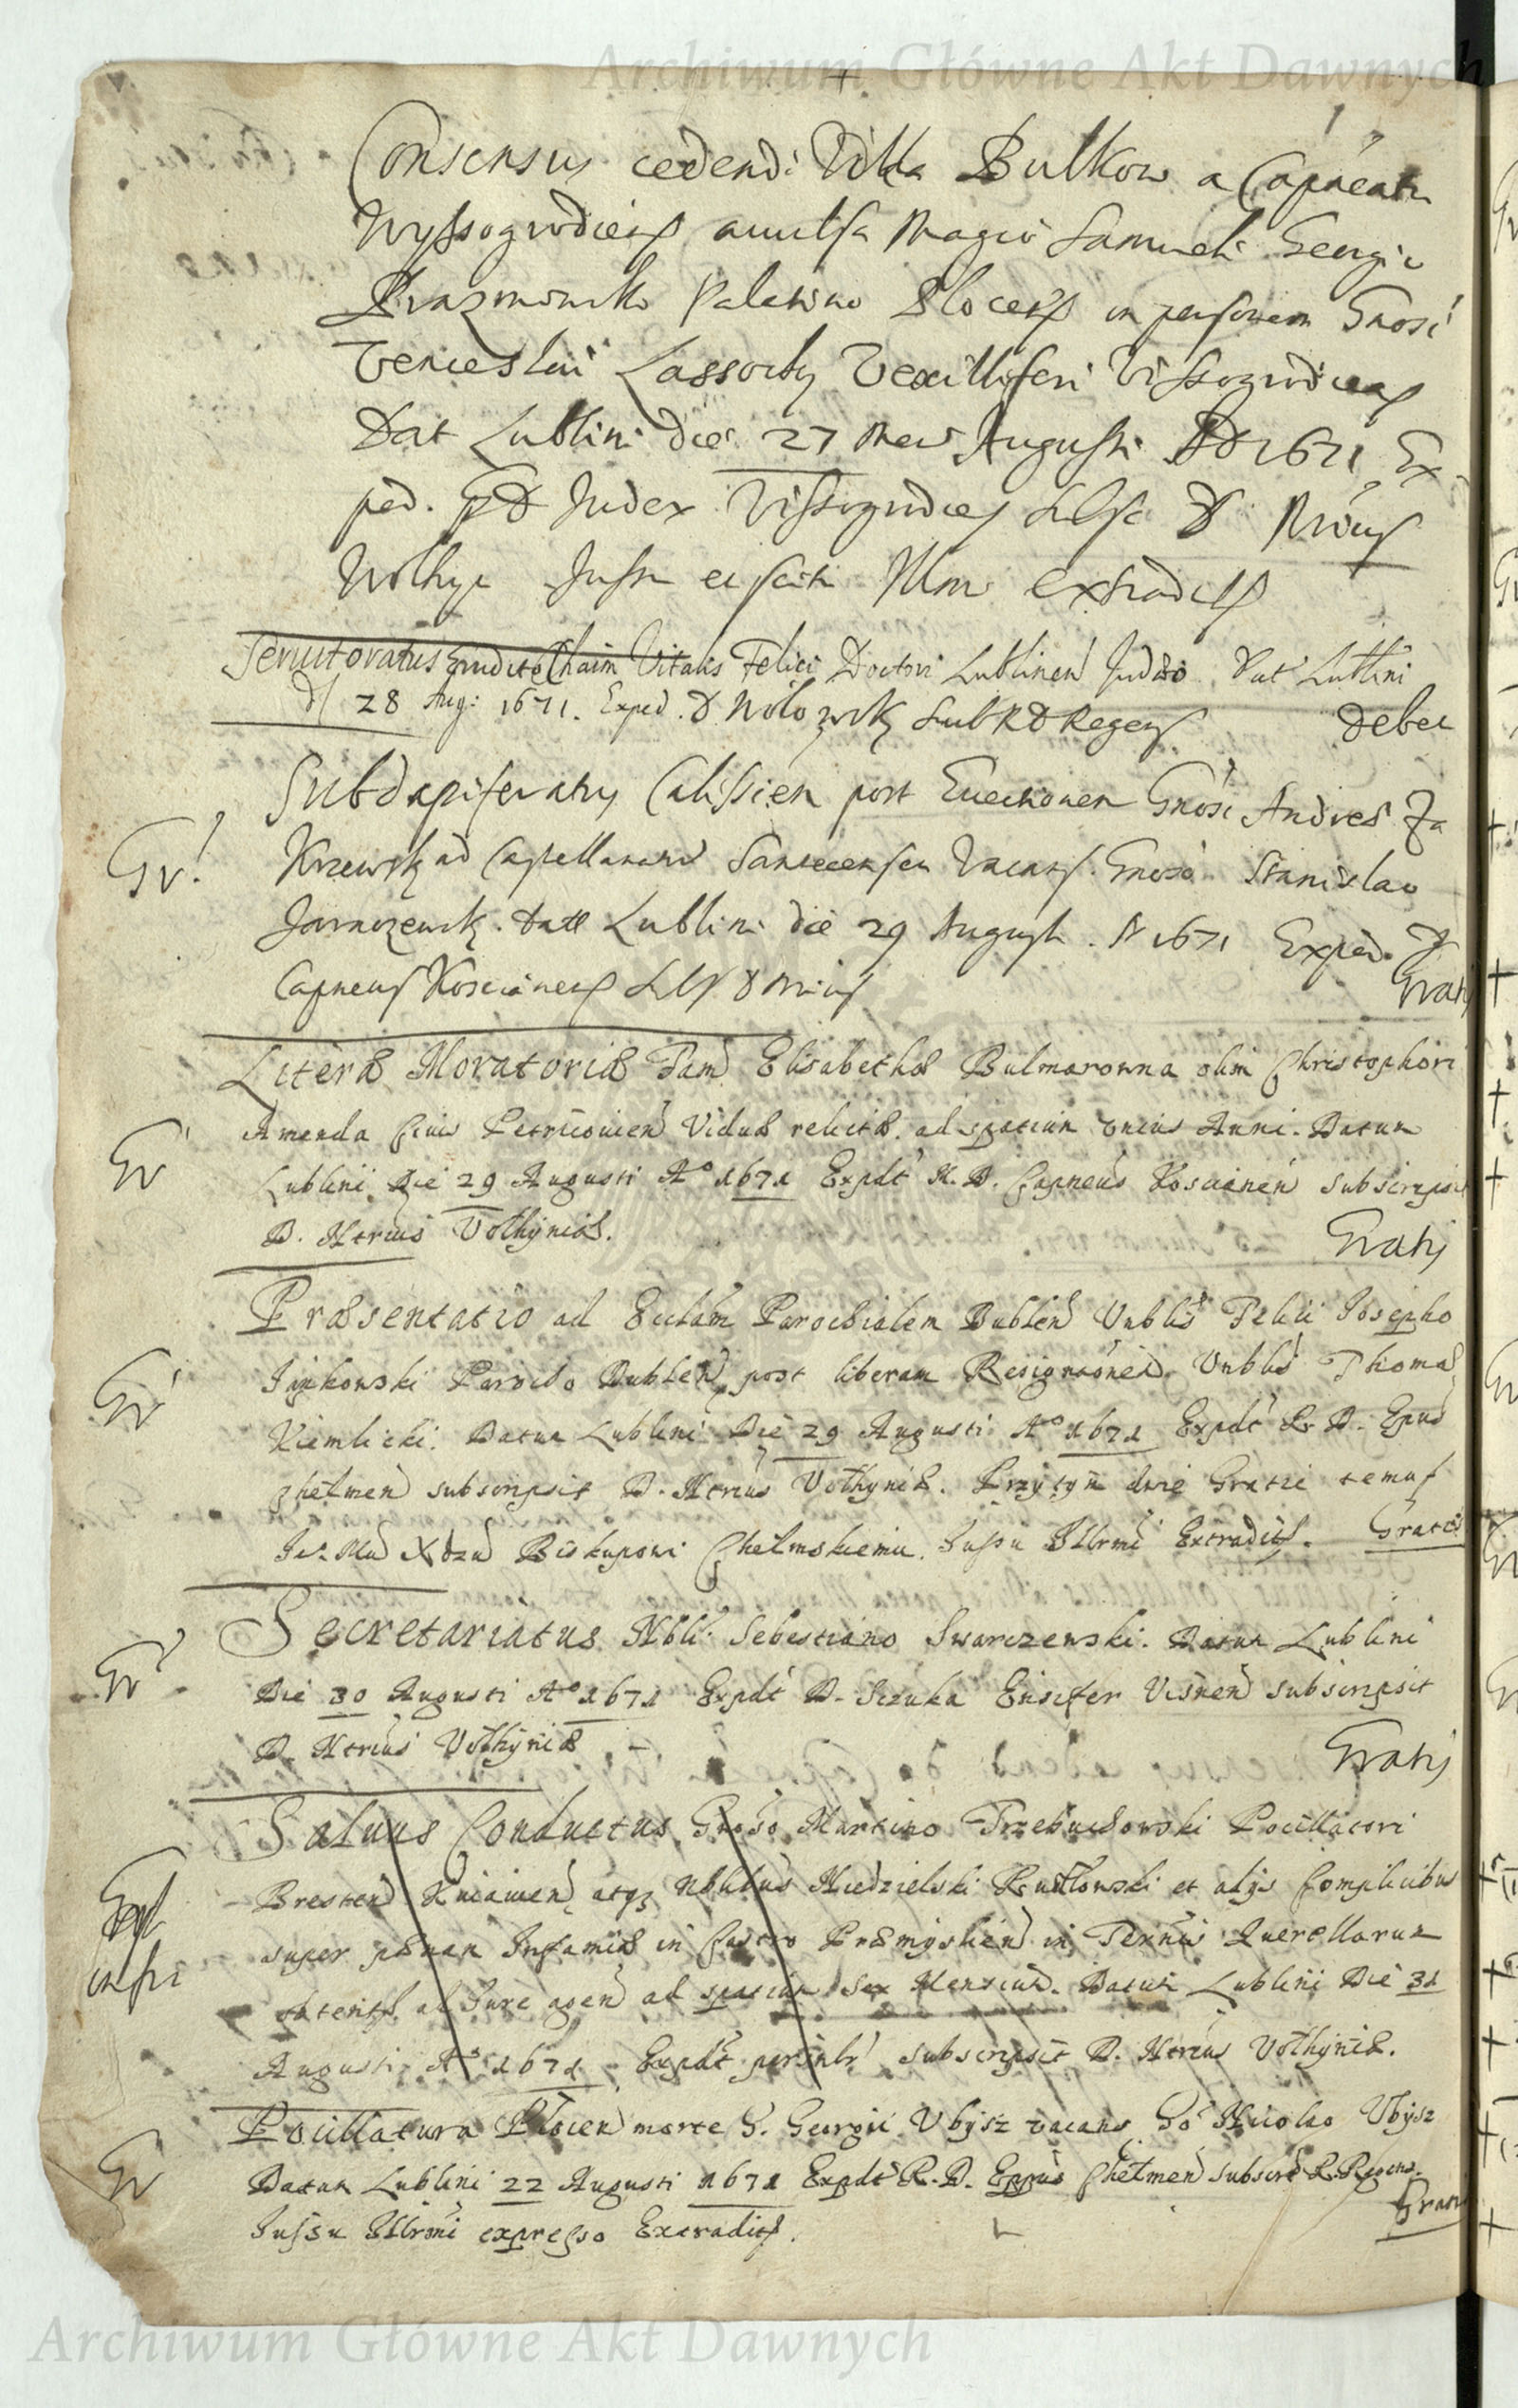 Archiwum Główne Akt Dawnych
Consensus cedendi Villa Bulkow a Capneatu
Wyssogrodien avulsa Magco Samueli Georgio
Prazmowski Palatino Plocen in personam Gnosi
Venceslai Lassocky Vexilliferi Vissogrodien
Dat Lublini die 27 Mens Augusti AD 1671 Ex
ped. GD Judex Vissogrodien D Nrius
Wolhye Jussu Illmi extradit
Servitoratus Erudito Chaim Vitalis Felici Doctori Lublinen Judæo Dat Lublini
D 28 Aug: 1671. Exped. D Wolo Sub R D Regens
Debet
Subdapiferatus Calissien post Evectionem Gnosi Andreæ Za
Gr.
Krzewsk ad Castellanam Santecensem Vacans Gnoso Stanislao
Jaraczewsk. Datt Lublini die 29 Augusti. A 1671 Exped. D
Capneus Koscianen D Nrius
Gratis
Literæ Moratoriæ Fam Elisabethæ Bulmarowna olim Christophori
Amenda Civis Petricovien Viduæ relictæ. ad spatium unius Anni. Datum
Gr
Lublini Die 29 Augusti A° 1671 Expdt M. D. Capneus Koscianen subscripsit
D. Ntrius Volhyniæ.
Gratis
Præsentatio ad Ecclam Parochialem Dublen Vnbli Felici Josepho
Gr
Parocho Dublen post liberam Resignaonem Vnblis Thomæ
Kiemlicki. Datum Lublini Die 29 Augusti A° 1671 Expdt R. D. Epus
Chelmen subscripsit D. Ntrius Volhyniæ. Przytym dwie Gratie temuſ
Je. Mc Xdzu Biskupowi Chelmskiemu. Jussu Illrmi Extradit. Gratis
Secretariatus Nbli Sebestiano Swarczewski. Datum Lublini
Gr
Die 30 Augusti A° 1671 Expdt D. Szczuka Ensifer Visnen subscripsit
D. Ntrius Volhyniæ
Gratis
Salvus Conductus Gnoso Martino Trzebuchowski Pocillatori
Bresten Kuiavien atqz Nblibus Niedzielski et alijs Complicibus
infr
super pænam Infamiæ in Castro Præmyslien in Termis Querellarum
obtent al Jure agend ad spacium Sex Mensium. Datum Lublini Die 31
Augusti A° 1671 Expdt per subscripsit D. Ntrius Volhyniæ.
Pocillatura Plocen morte G. Georgii Vbysz vacans Go Nicolao Vbysz
Gr
Datum Lublini 22 Augusti 1671 Expdt R. D. Eppus Chelmen subscrt R. Regens.
Gratis
Jussu Illrmi expresso Extradit.
Archiwum Główne Akt Dawnych